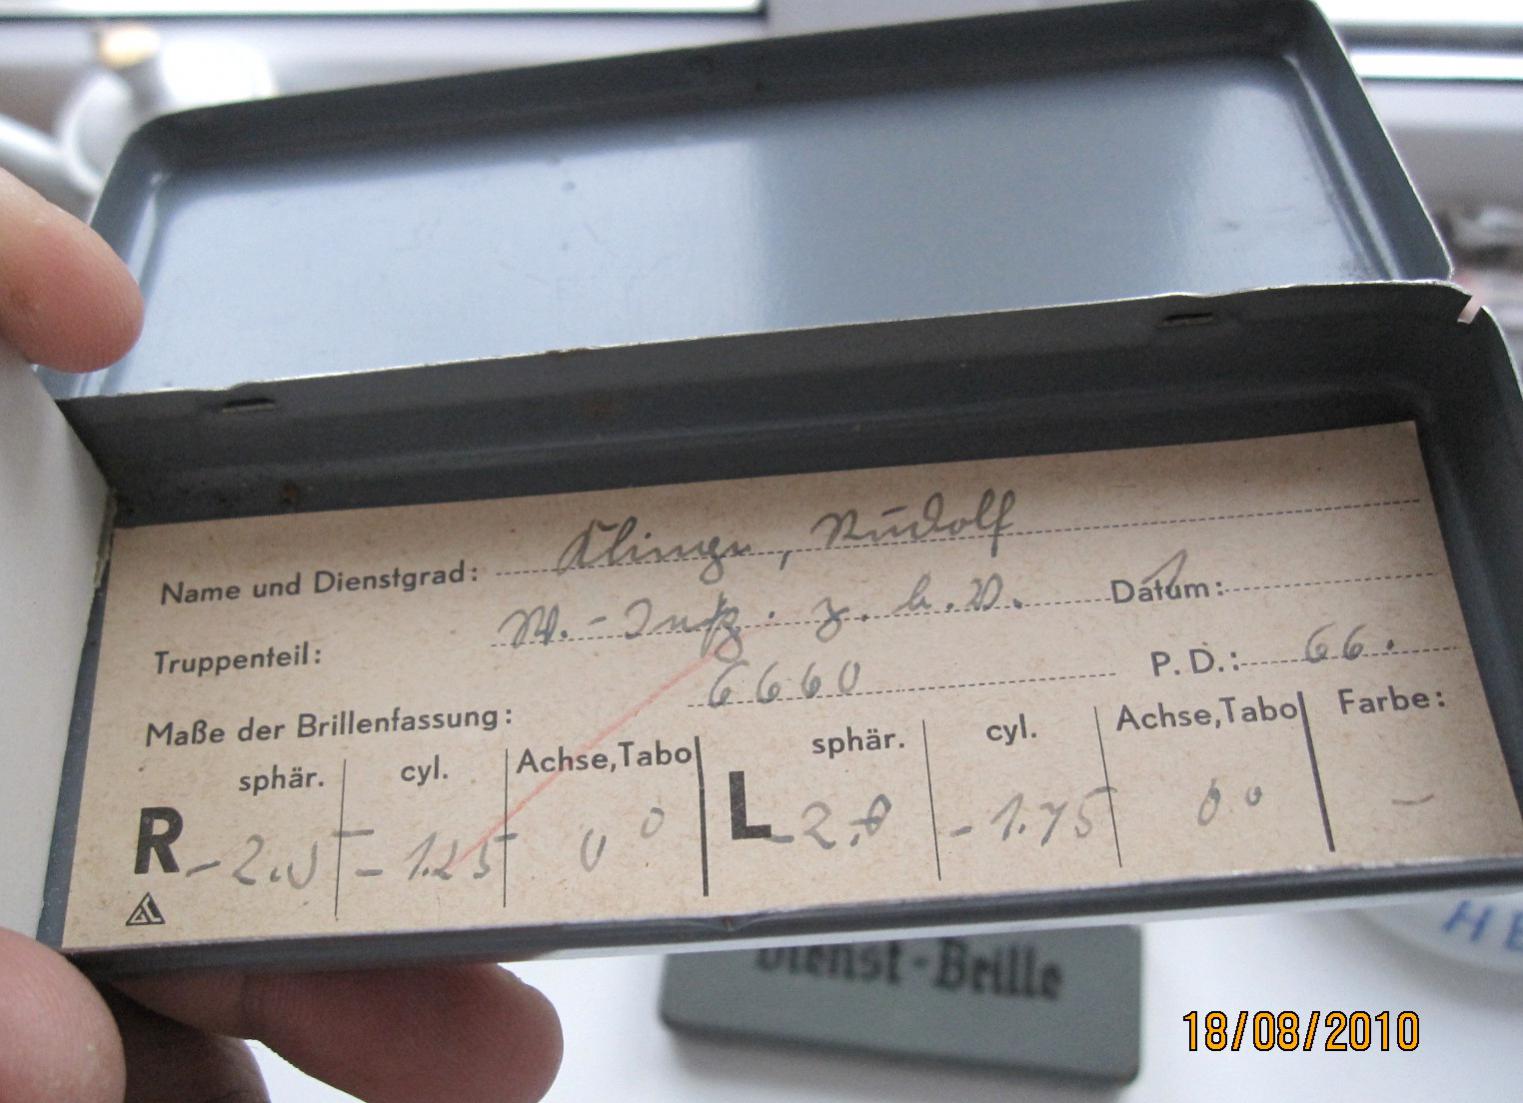 Name und Dienstgrad: Klinge, Rudolf
Truppenteil: z. b. V. Datum:
Maße der Brillenfassung: 6660 P. D.: 66.
sphär. cyl. Achse,Tabo sphär. cyl. Achse,Tabo Farbe:
R -2.0 -1.25 0° L -2.0 -1.75 0° –
Dienst-Brille
HE
18/08/2010